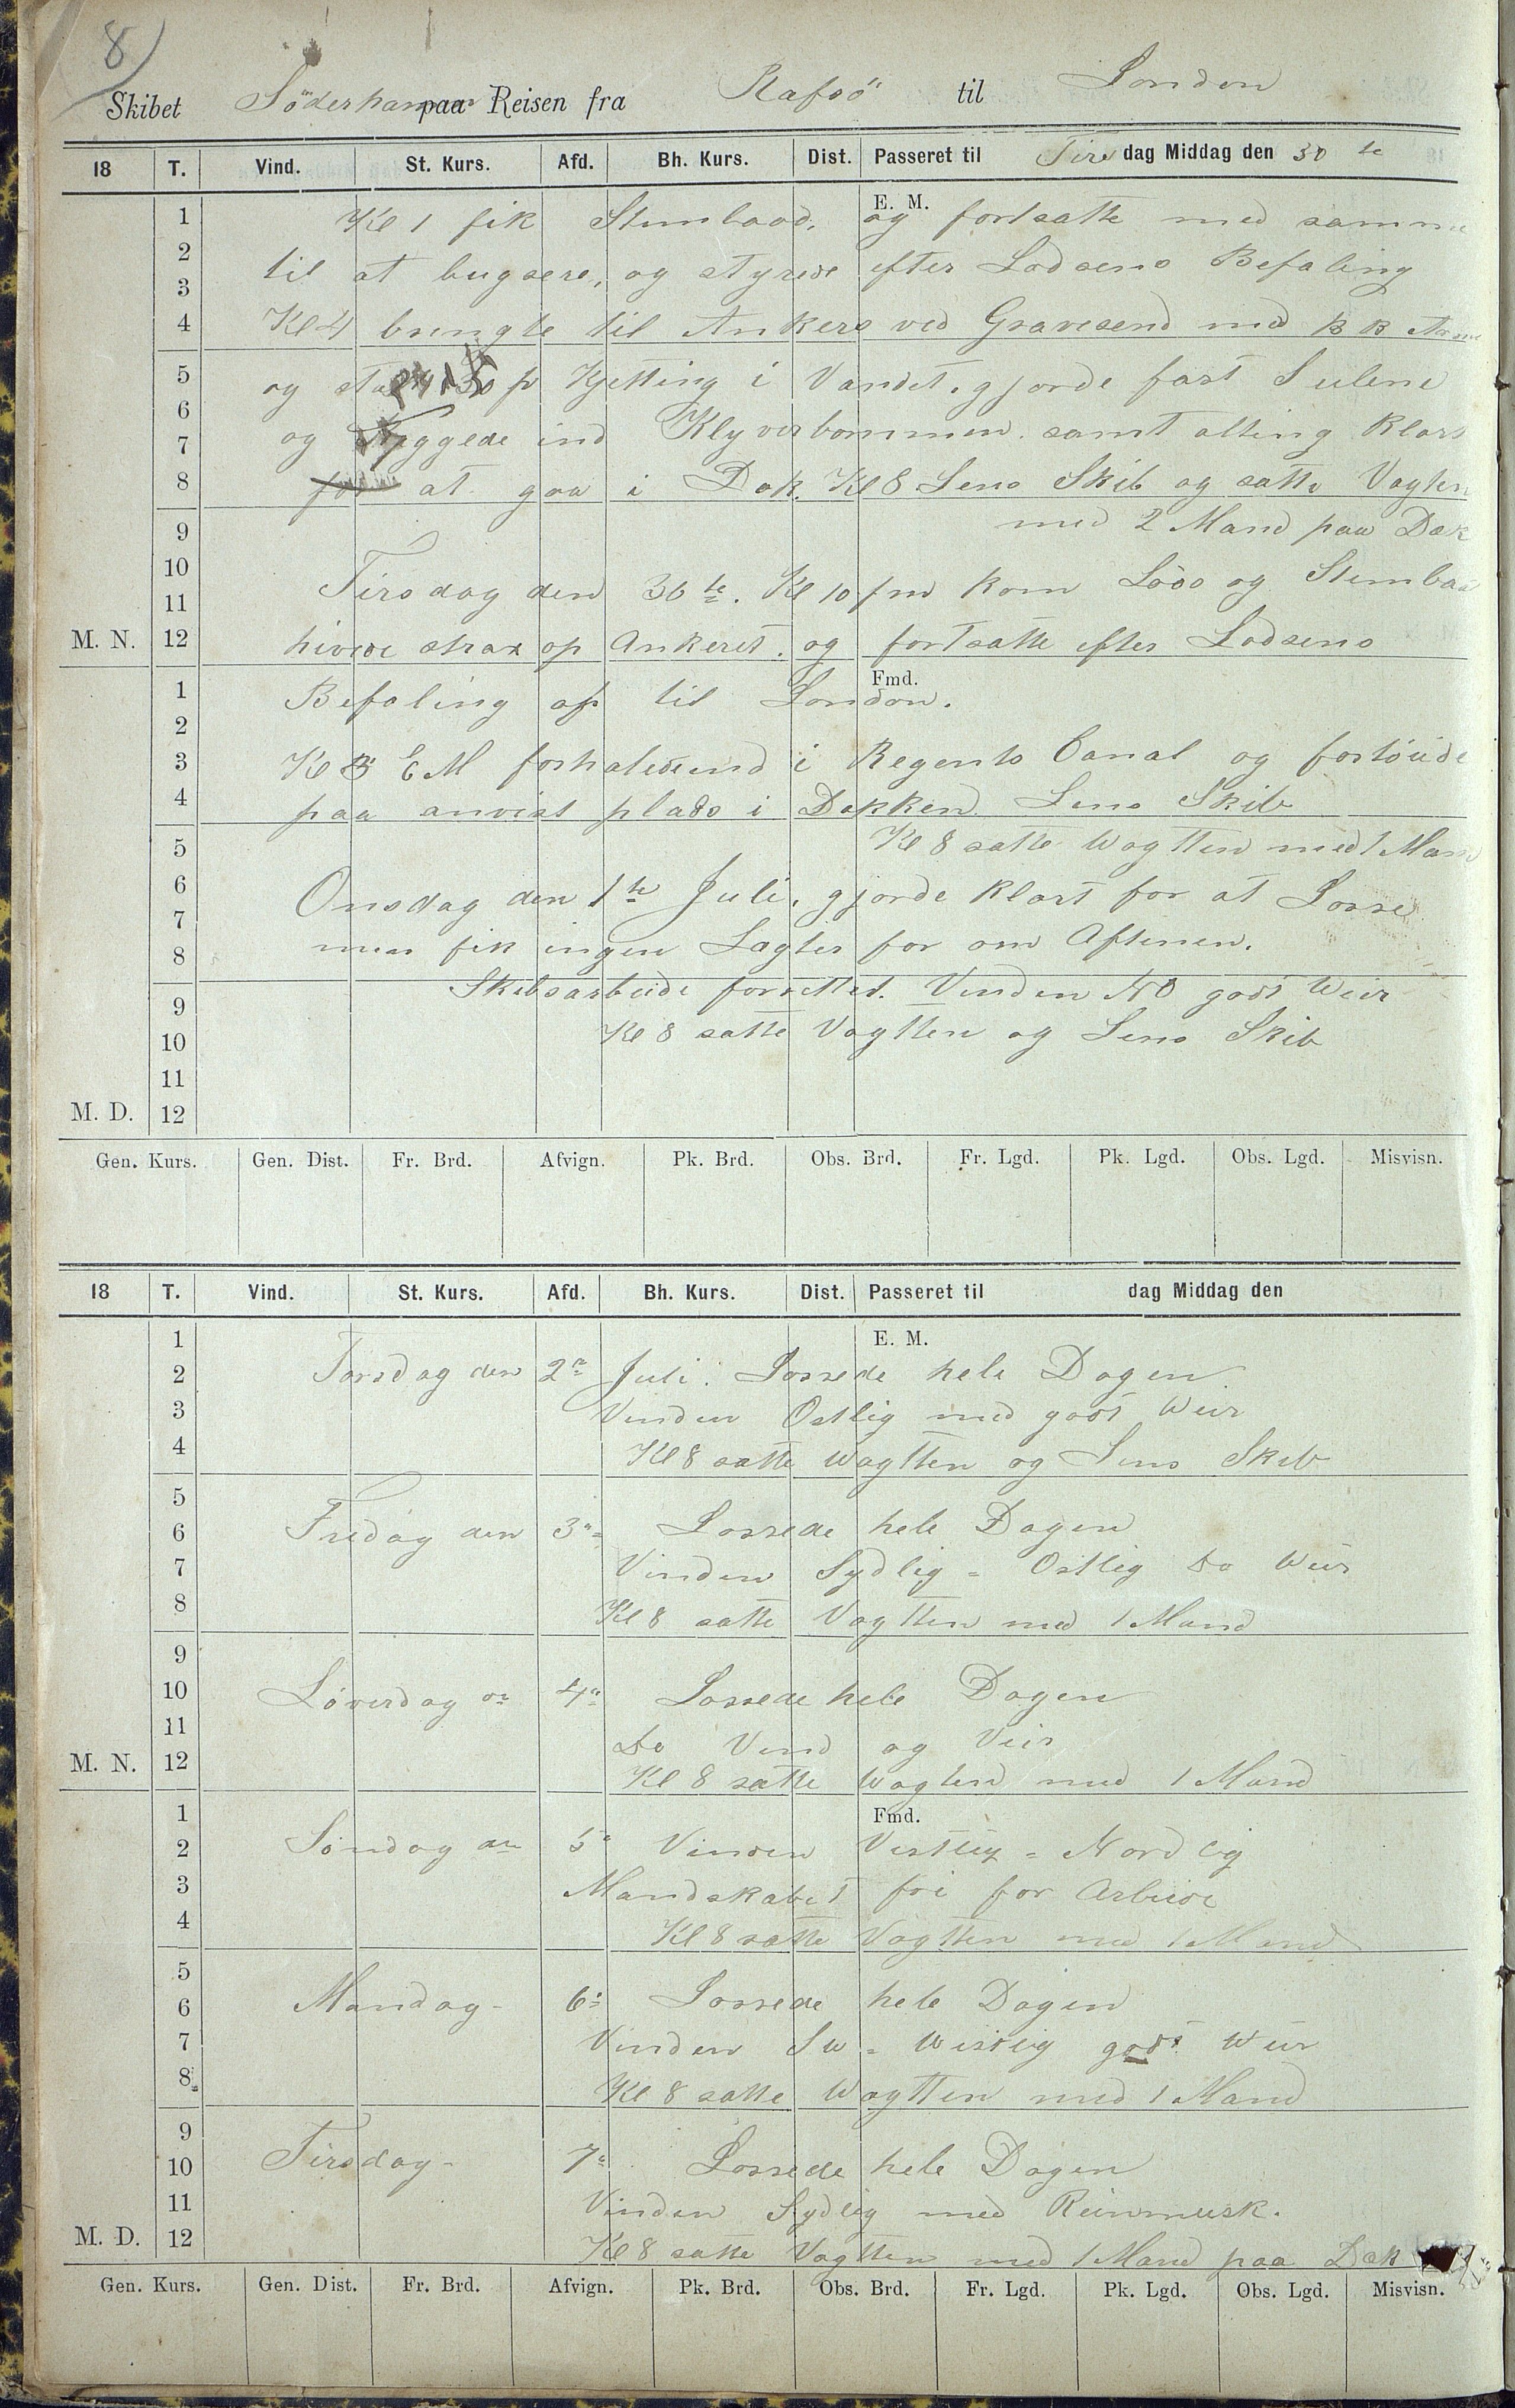 8
Skibet Söderhamn paa Reisen fra Rafsö til London
18 T. Vind. St. Kurs. Afd. Bh. Kurs. Dist. Passeret til Tirs dag Middag den 30 te
E. M.
1 Kl 1 fik Stimbaad, og fortsatte med samme
2 til at bugsere, og styrede efter Lodsens Befaling
3
4 Kl 4 bringte til Ankers ved Gravesend med B B
5 og Kjetting i Vandet, gjorde fast Seilene
6
7 og ind Klyverbommen. samt alting Klart
8 for at gaa i Dok. Kl 8 Lens Skib og satte Vagten
9 med 2 Mand paa Dæk
10 Tirsdag den 30 te. Kl 10 fm kom Lods og Stimbaad
11
M. N. 12 hivede strax op Ankeret. og fortsatte efter Lodsens
Fmd.
1 Befaling op til London.
2
3 Kl 3 E M forhalede ind i Regents Canal og fortöiede
4 paa anvist plads i Dokken. Lens Skib
5 Kl 8 satte Wagtten med 1 Mand
6 Onsdag den 1 te Juli, gjorde Klart for at Losse
7
8 men fik ingen Lagter for om Aftenen.
9 Skibsarbeide forrettet. Vinden NO godt Weir
10 Kl 8 satte Vagtten og Lens Skib
11
M. D. 12
Gen. Kurs. Gen. Dist. Fr. Brd. Afvign. Pk. Brd. Obs. Brd. Fr. Lgd. Pk. Lgd. Obs. Lgd. Misvisn.
18 T. Vind. St. Kurs. Afd. Bh. Kurs. Dist. Passeret til dag Middag den
1 E. M.
2 Torsdag den 2 Juli. Lossede hele Dagen
3 Vinden Ostlig med godt Weir
4 Kl 8 satte Wagtten og Lens Skib
5
6 Fredag den 3 Lossede hele Dagen
7 Vinden Sydlig = Ostlig Do Weir
8 Kl 8 satte Vagtten med 1 Mand
9
10 Löverdag 4 Lossede hele Dagen
11 Do Vind og Veir
M. N. 12 Kl 8 satte Wagten med 1 Mand
1 Fmd.
2 Söndag den 5 Vinden Vestlig = Nordlig
3 Mandskabet fri for Arbeide
4 Kl 8 satte Vagtten med 1 Mand
5
6 Mandag - 6 Lossede hele Dagen
7 Vinden Sw = Westlig godt Weir
8 Kl 8 satte Wagtten med 1 Mand
9
10 Tirsdag - 7 Lossede hele Dagen
11 Vinden Sydlig med Reinmusk.
M. D. 12 Kl 8 satte Vagtten med 1 Mand paa Dæk
Gen. Kurs. Gen. Dist. Fr. Brd. Afvign. Pk. Brd. Obs. Brd. Fr. Lgd. Pk. Lgd. Obs. Lgd. Misvisn.